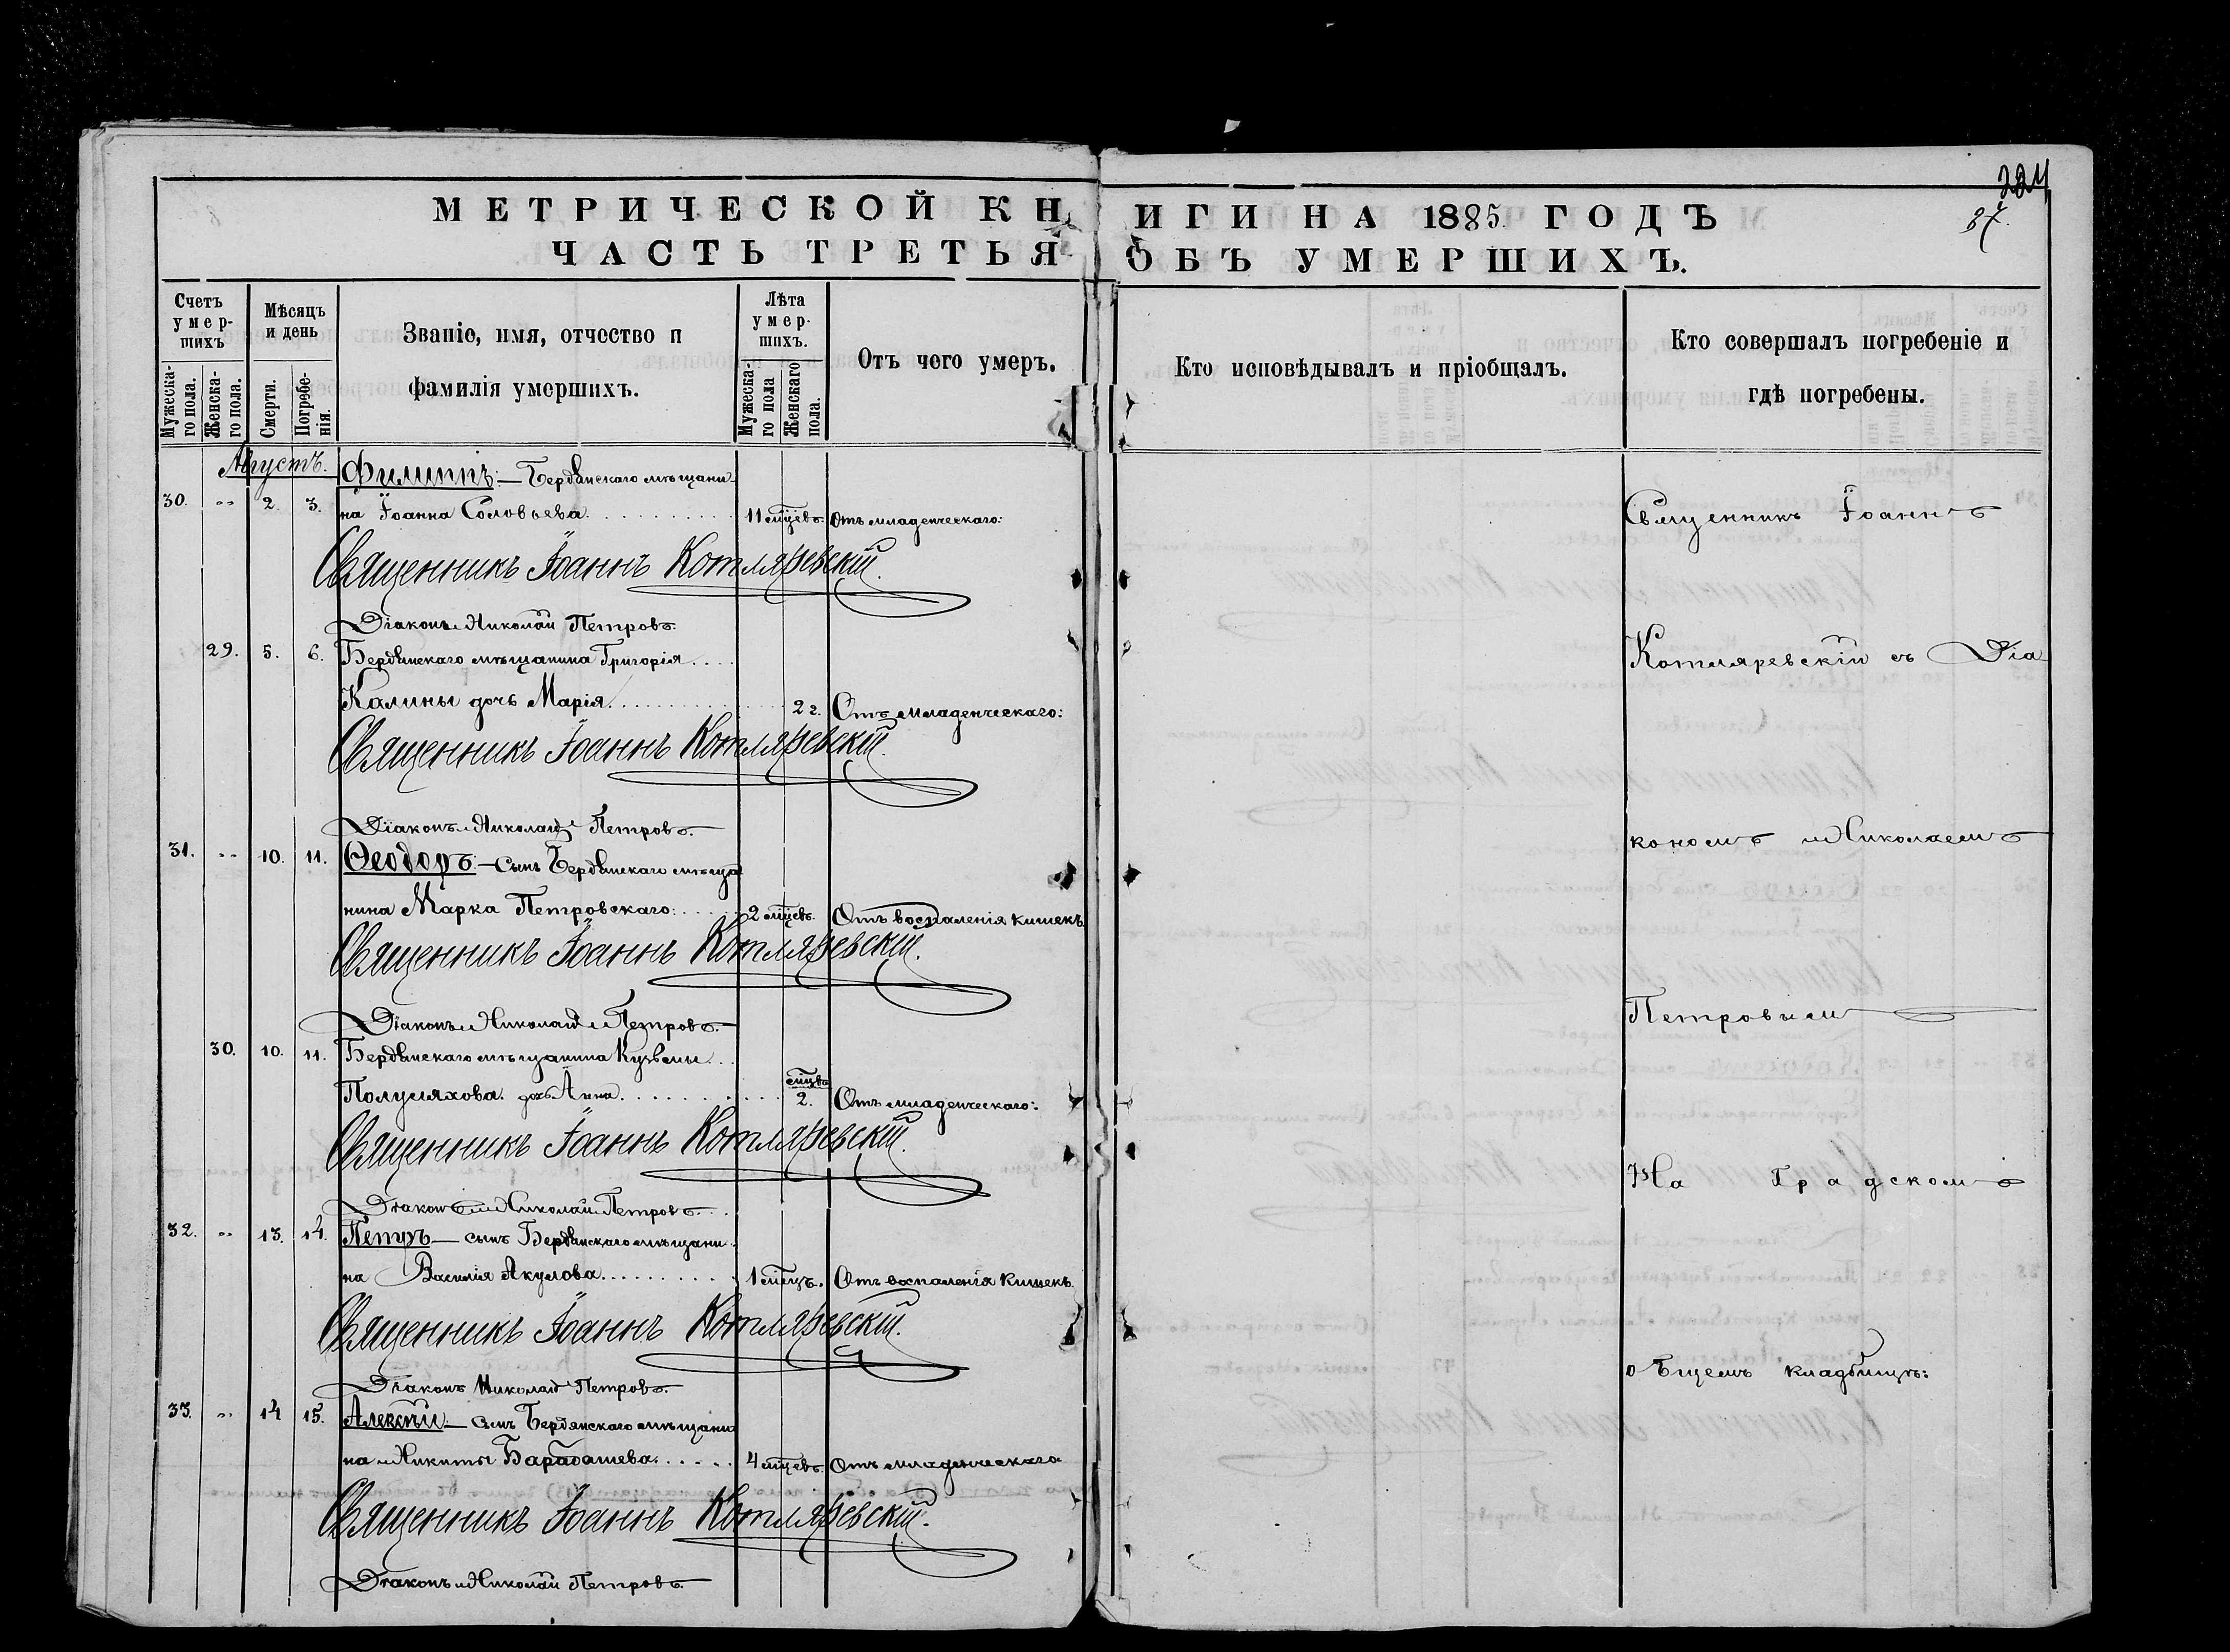 224
87.
МЕТРИЧЕСКОЙ КНИГИ НА 1885 ГОДЪ
ЧАСТЬ ТРЕТЬЯ ОБЪ УМЕРШИХЪ.
Счетъ умер-шихъ
Мужеска-го пола.
Женска-го пола.
Мѣсяцъ и день
Смерти.
Погребе-нія.
Званіе, имя, отчество и
фамилія умершихъ.
Лѣта умер-шихъ.
Мужеска-го пола
Женскаго пола.
Отъ чего умеръ.
Кто исповѣдывалъ и пріобщалъ.
Кто совершалъ погребеніе и
гдѣ погребены.
Августъ.
Филиппъ:— Бердянскаго мѣщани-
30. „ 2. 3. на Іоанна Соловьева. 11 мцевъ. Отъ младенческаго:
Священникъ Іоаннъ Котляревскій.
Діаконъ Николай Петровъ.
29. 5. 6. Бердянскаго мѣщанина Григорія
Калины дочь Марія. 2 г. Отъ младенческаго:
Священникъ Іоаннъ Котляревскій.
Діаконъ Николай Петровъ.
31. „ 10. 11. Ѳеодоръ:— сынъ Бердянскаго мѣща
нина Марка Петровскаго: 2 мцевъ. Отъ воспаленія кишекъ
Священникъ Іоаннъ Котляревскій.
Діаконъ Николай Петровъ.
30. 10. 11. Бердянскаго мѣщанина Кузьмы
Полуляхова дочь Анна. мцевъ 2. Отъ младенческаго:
Священникъ Іоаннъ Котляревскій.
Діаконъ Николай Петровъ.
32. „ 13. 14. Петръ— сынъ Бердянскаго мѣщани
на Василія Акулова. 1 мцъ. Отъ воспаленія кишекъ
Священникъ Іоаннъ Котляревскій.
Діаконъ Николай Петровъ.
33. „ 14 15. Алексѣй:— сынъ Бердянскаго мѣщани
на Никиты Барабашева. 4 мцевъ. Отъ младенческаго
Священникъ Іоаннъ Котляревскій.
Діаконъ Николай Петровъ.
Священникъ Іоаннъ
Котляревскій съ Діа
кономъ Николаемъ
Петровым
На Градскомъ
общемъ кладбищѣ: